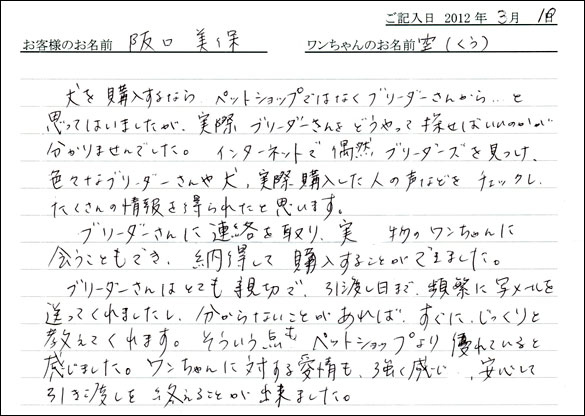 ご記入日 2012年 3月 1日
お客様のお名前 阪口 美保 ワンちゃんのお名前 空(くう)
犬を購入するなら、ペットショップではなくブリーダーさんから…と
思ってはいましたが、実際ブリーダーさんをどうやって探せばいいのかが
分かりませんでした。インターネットで偶然ブリーダーズを見つけ、
色々なブリーダーさんや犬、実際購入した人の声などをチェックし、
たくさんの情報を得られたと思います。
ブリーダーさんに連絡を取り、実物のワンちゃんに
会うこともでき、納得して購入することができました。
ブリーダーさんはとても親切で、引渡し日まで、頻繁に写メールを
送ってくれましたし、分からないことがあれば、すぐに、じっくりと
教えてくれます。そういう点もペットショップより優れていると
感じました。ワンちゃんに対する愛情も、強く感じ、安心して
引き渡しを終えることが出来ました。